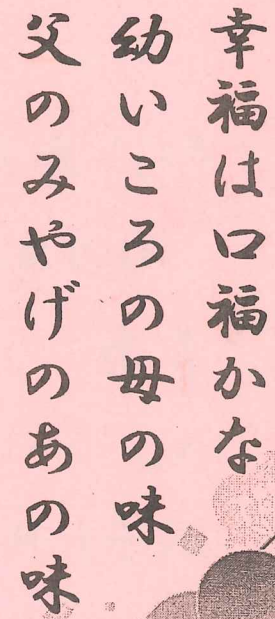 幸福は口福かな
幼いころの母の味
父のみやげのあの味